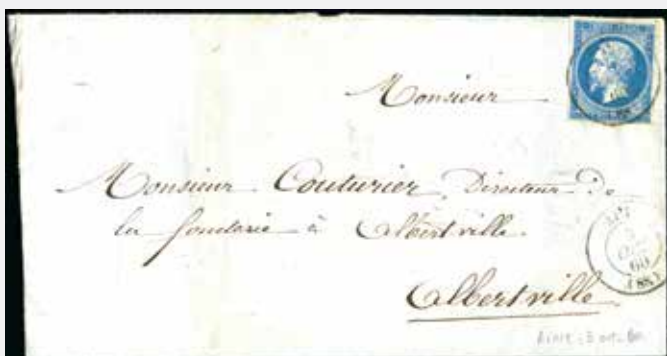 Monsieur
Monsieur Couturier Directeur de
la fonderie à Albertville.
Albertville
60